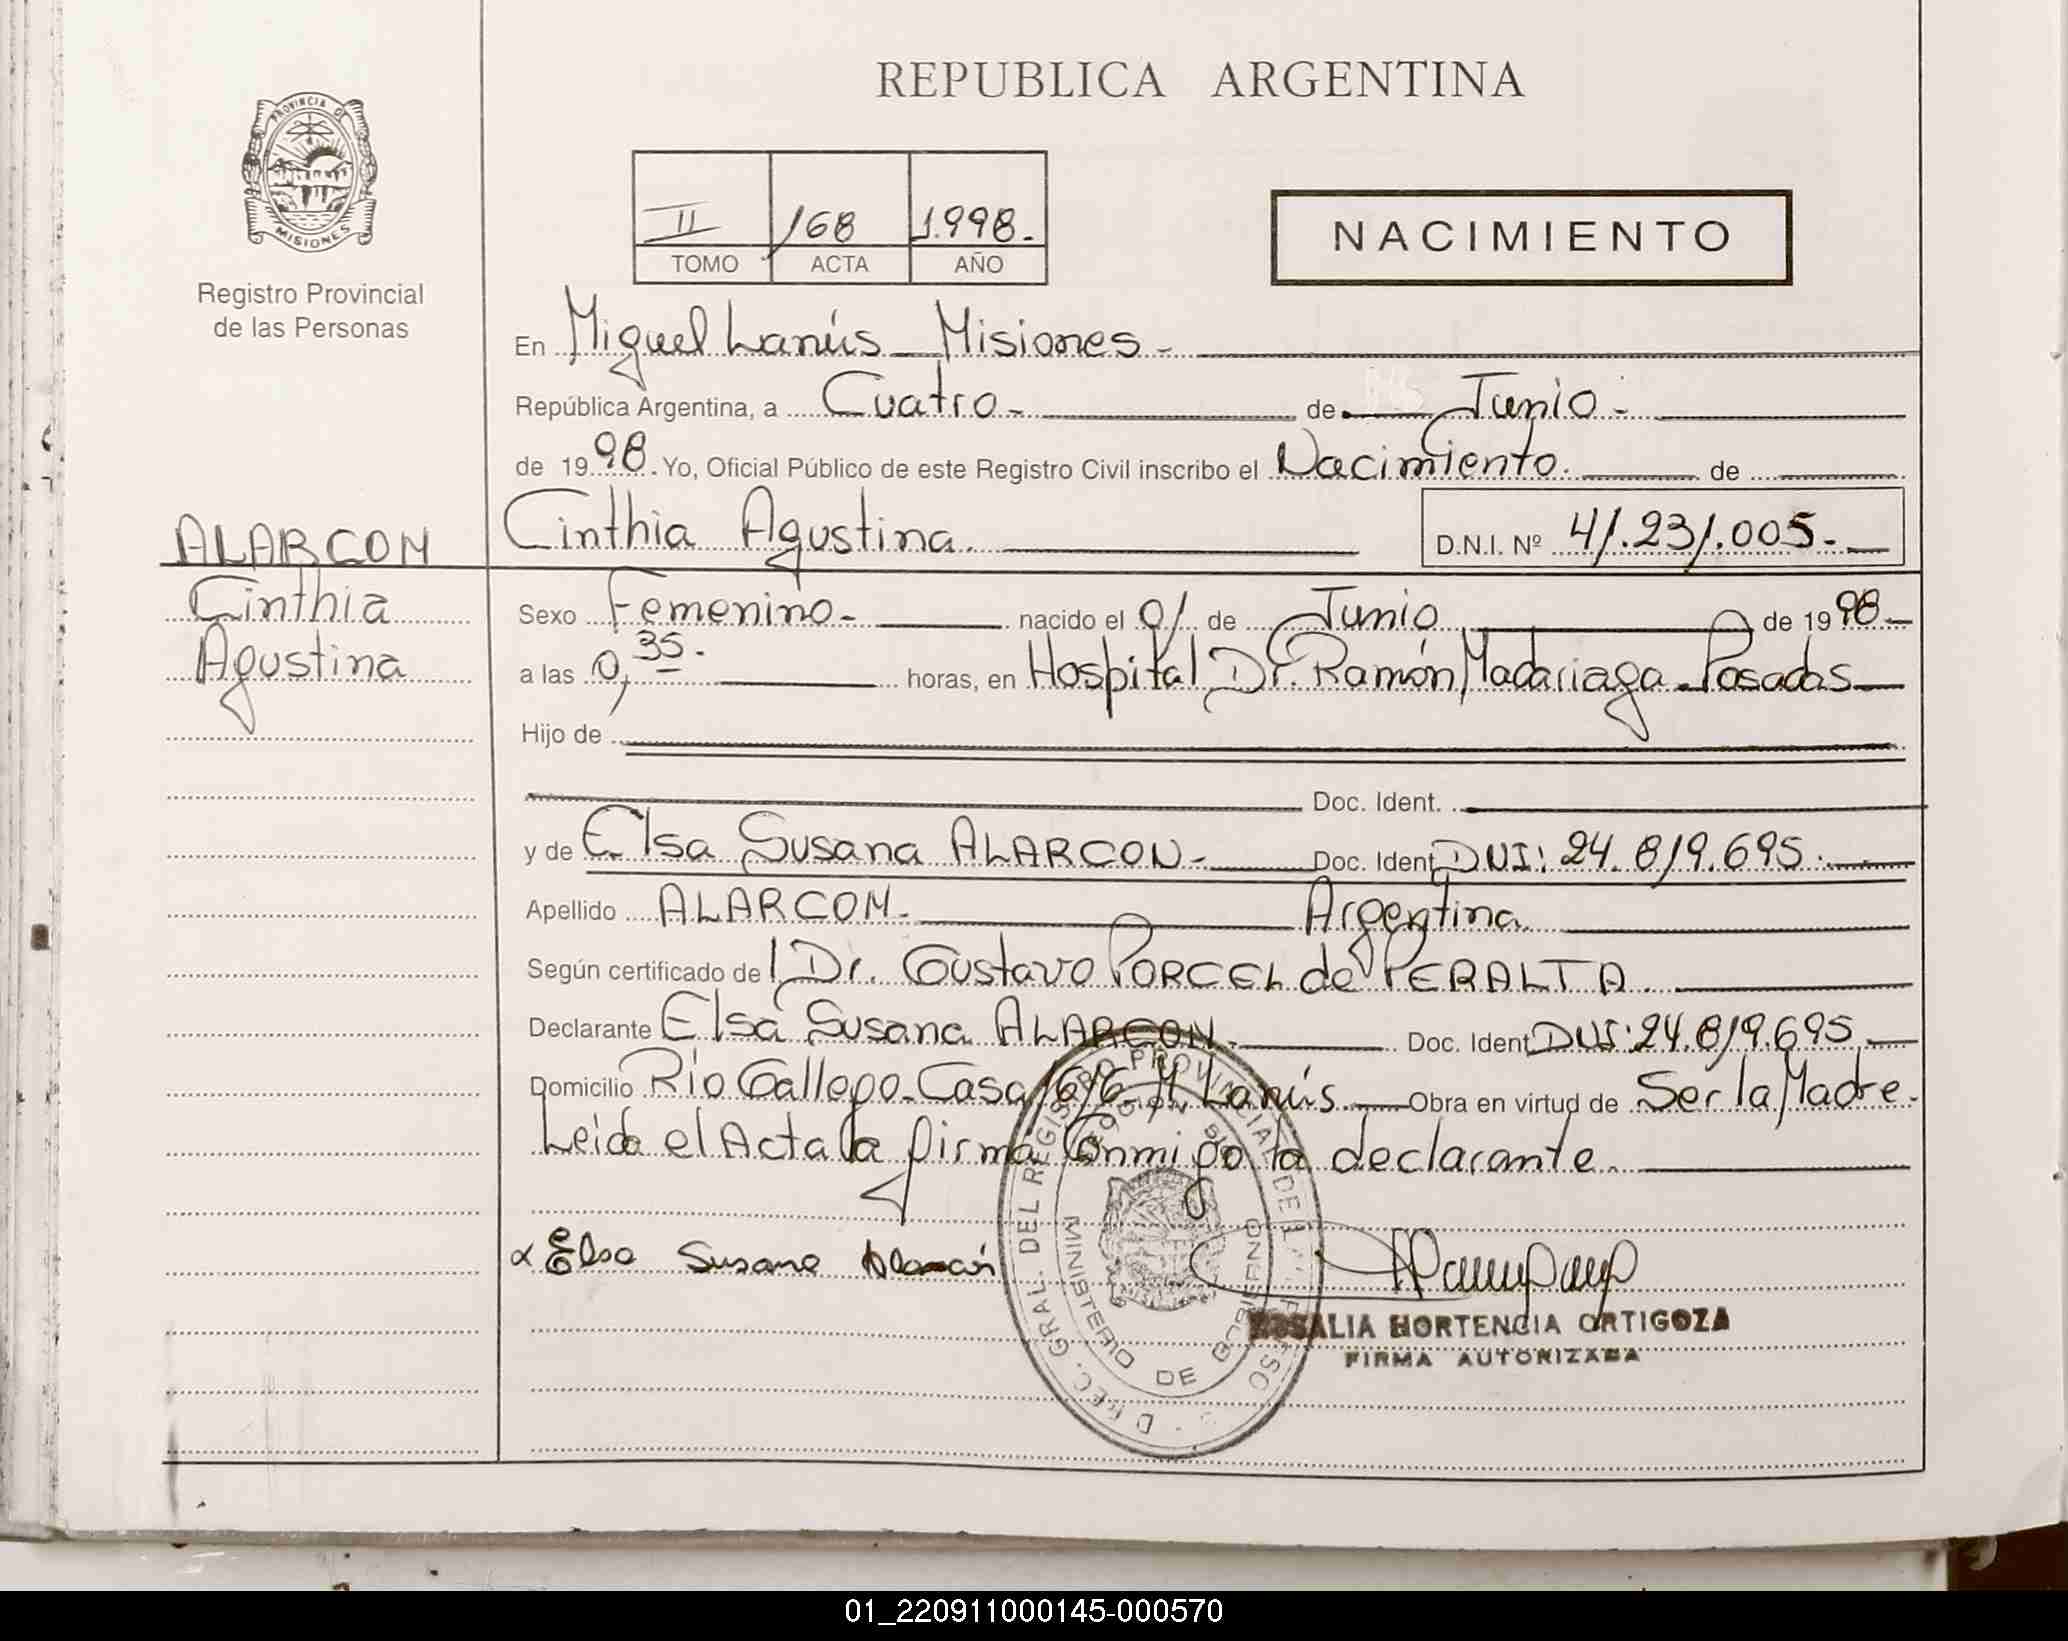 REPUBLICA ARGENTINA
PROVINCIA DE
MISIONES
Registro Provincial
de las Personas
II 168 1.998.-
TOMO ACTA AÑO
NACIMIENTO
En Miguel Lanús Misiones.-
República Argentina, a Cuatro.- de Junio.-
de 1998. Yo, Oficial Público de este Registro Civil inscribo el Nacimiento. de
ALARCON Cinthia Agustina. D.N.I. Nº 41.231.005.-
Cinthia
Agustina
Sexo Femenino.- nacido el 01 de Junio de 1998.-
a las 0,35.- horas, en Hospital Dr. Ramón Madariaga - Posadas
Hijo de
Doc. Ident.
y de Elsa Susana ALARCON.- Doc. Ident DNI: 24.819.695.-
Apellido ALARCON.- Argentina.
Según certificado de l Dr. Gustavo PORCEL de PERALTA.
Declarante Elsa Susana ALARCON.- Doc. Ident DNI: 24.819.695.-
Domicilio Rio Gallego - Casa 1616 - M Lanús.- Obra en virtud de Ser la Madre.-
Leida el Acta la firma Conmigo la declarante.
Elsa Susana Alarcón
DIREC. GRAL. DEL REGISTRO PROVINCIAL DE
MINISTERIO DE GOBIERNO
ROSALIA HORTENCIA ORTIGOZA
FIRMA AUTORIZADA
01_220911000145-000570